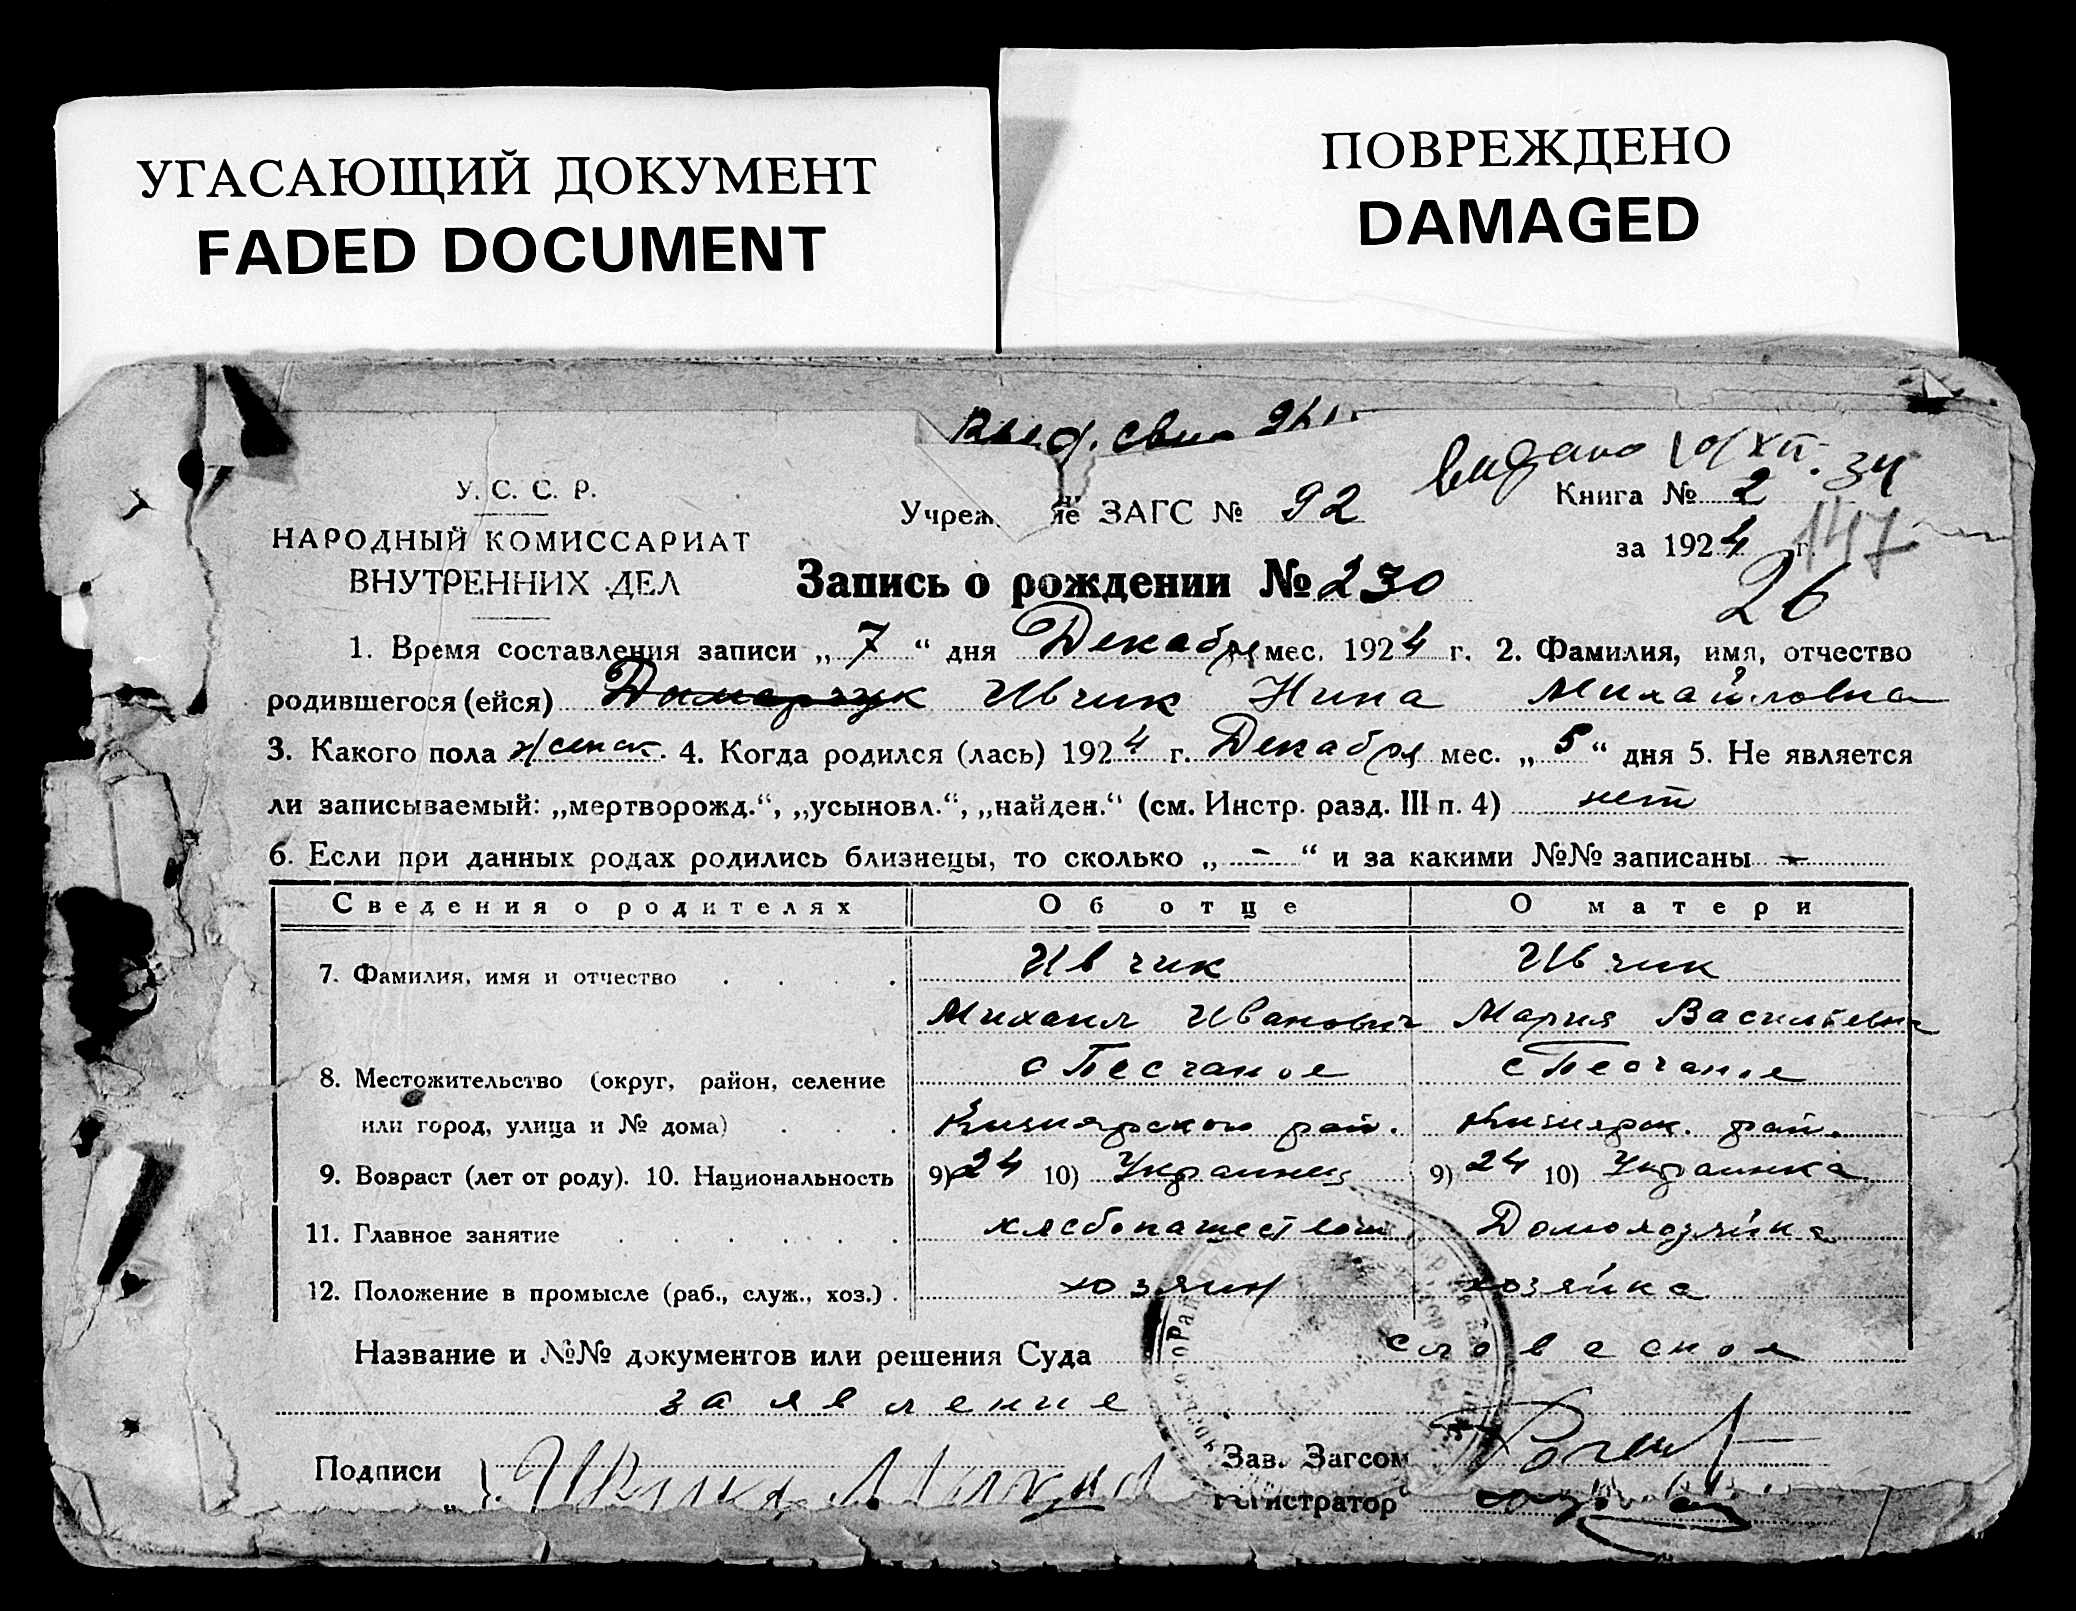 УГАСАЮЩИЙ ДОКУМЕНТ
FADED DOCUMENT
ПОВРЕЖДЕНО
DAMAGED
видано 10/XII. 34
У. С. С. Р.
НАРОДНЫЙ КОМИССАРИАТ
ВНУТРЕННИХ ДЕЛ
Учреж ие ЗАГС № 92
Книга № 2
за 1924 г.
147
26
Запись о рождении № 230
1. Время составления записи „ 7 “ дня Декабря мес. 1924 г. 2. Фамилия, имя, отчество
родившегося (ейся) Ивчик Нина Михайловна
3. Какого пола женск. 4. Когда родился (лась) 1924 г. Декабря мес. „ 5 “ дня 5. Не является
ли записываемый: „мертворожд.“, „усыновл.“, „найден.“ (см. Инстр. разд. III п. 4) нет
6. Если при данных родах родились близнецы, то сколько „ - “ и за какими №№ записаны -
Сведения о родителях Об отце О матери
7. Фамилия, имя и отчество Ивчик Ивчик
Михаил Иванович Мария Васильевна
8. Местожительство (округ, район, селение с Песчаное с Песчаное
или город, улица и № дома) Кизиярского рай. Кизиярск. рай.
9. Возраст (лет от роду). 10. Национальность 9) 24 10) Украинец 9) 24 10) Украинка
11. Главное занятие хлебопашеством Домохозяйка
12. Положение в промысле (раб., служ., хоз.) хозяин хозяйка
Название и №№ документов или решения Суда словесное
заявление
Подписи
Зав. Загсом
Регистратор